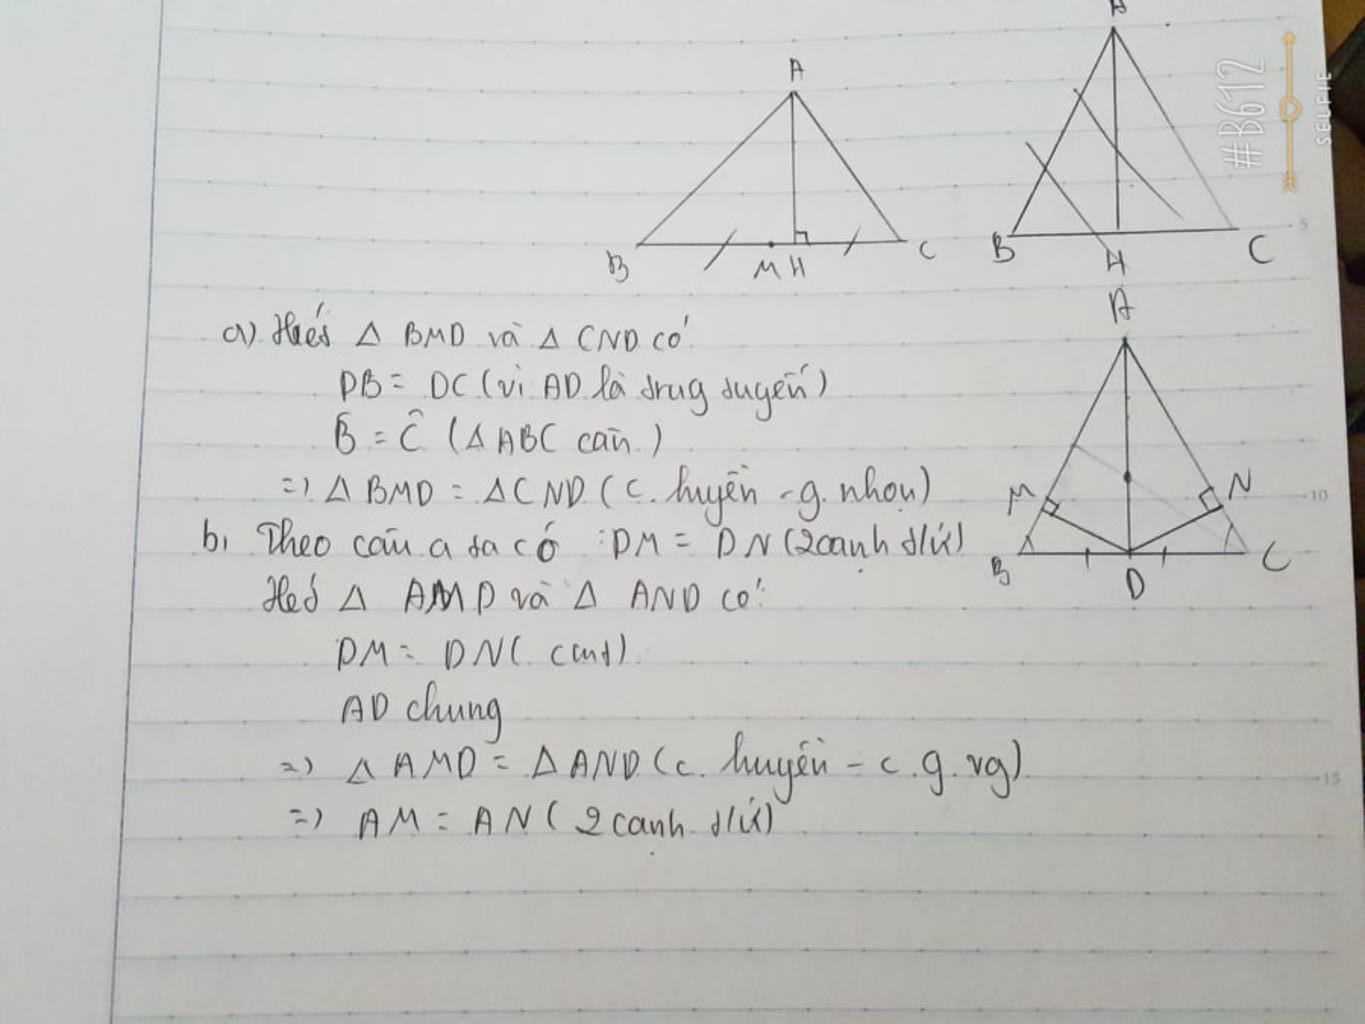 A
B M H C
B H C
#B612
SELFIE
5
a) Xét Δ BMD và Δ CND có
DB = DC (vì AD là trug tuyến)
B̂ = Ĉ (Δ ABC cân.)
=) Δ BMD = Δ CND (c. huyền - g. nhọn)
b, Theo câu a ta có : DM = DN (2 cạnh t/ứ)
Xét Δ AMD và Δ AND có:
DM = DN (cmt)
AD chung
=) Δ AMD = Δ AND (c. huyền - c.g.vg)
=) AM = AN (2 cạnh t/ứ)
A
M N
10
B D C
15